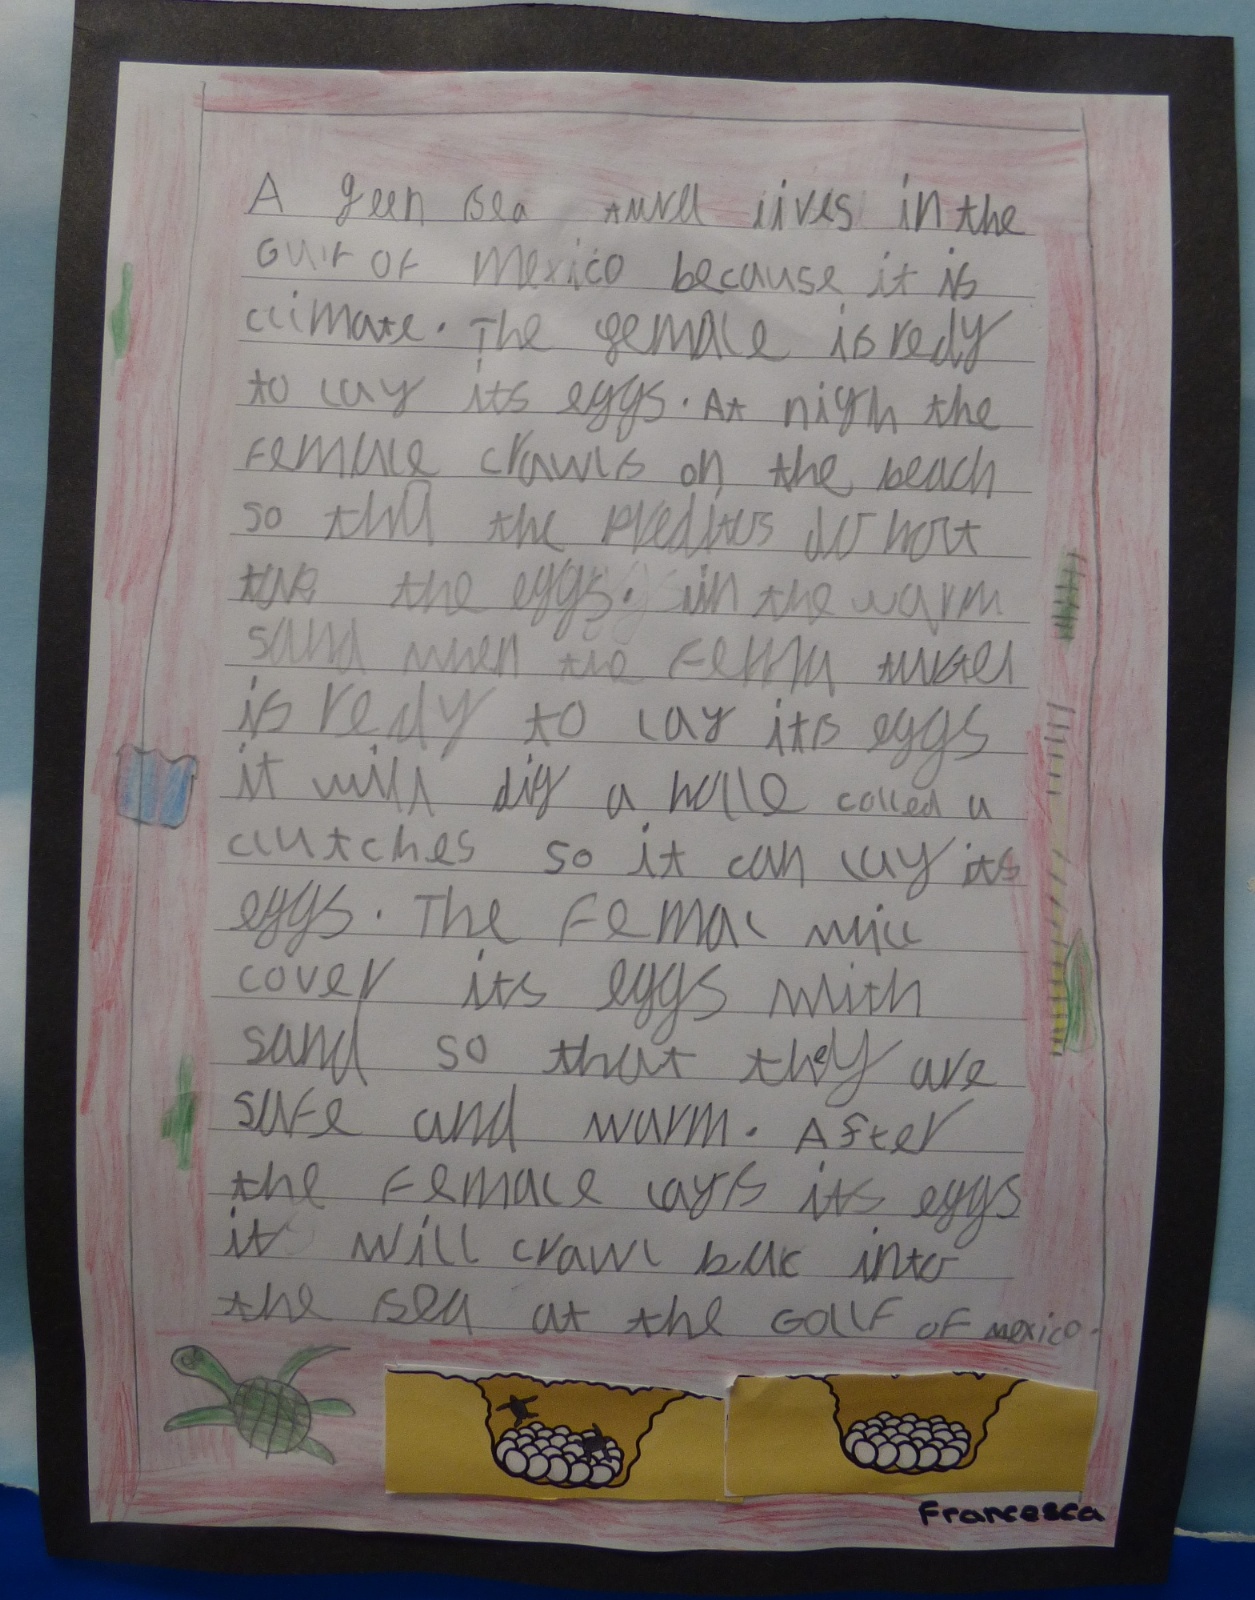 A geen sea turel lives in the
Gulf of mexico because it is
climate. The female is redy
to lay its eggs. At nigth the
female crawls on the beach
so that the do not
the eggs. in the warm
sand when the femal turtel
is redy to lay its eggs
it will dig a holle called a
clutches so it can lay its
eggs. The Femal will
cover its eggs with
sand so that they are
safe and warm. After
the female lays its eggs
it will crawl bac into
the sea at the Golf of mexico.
Francesca